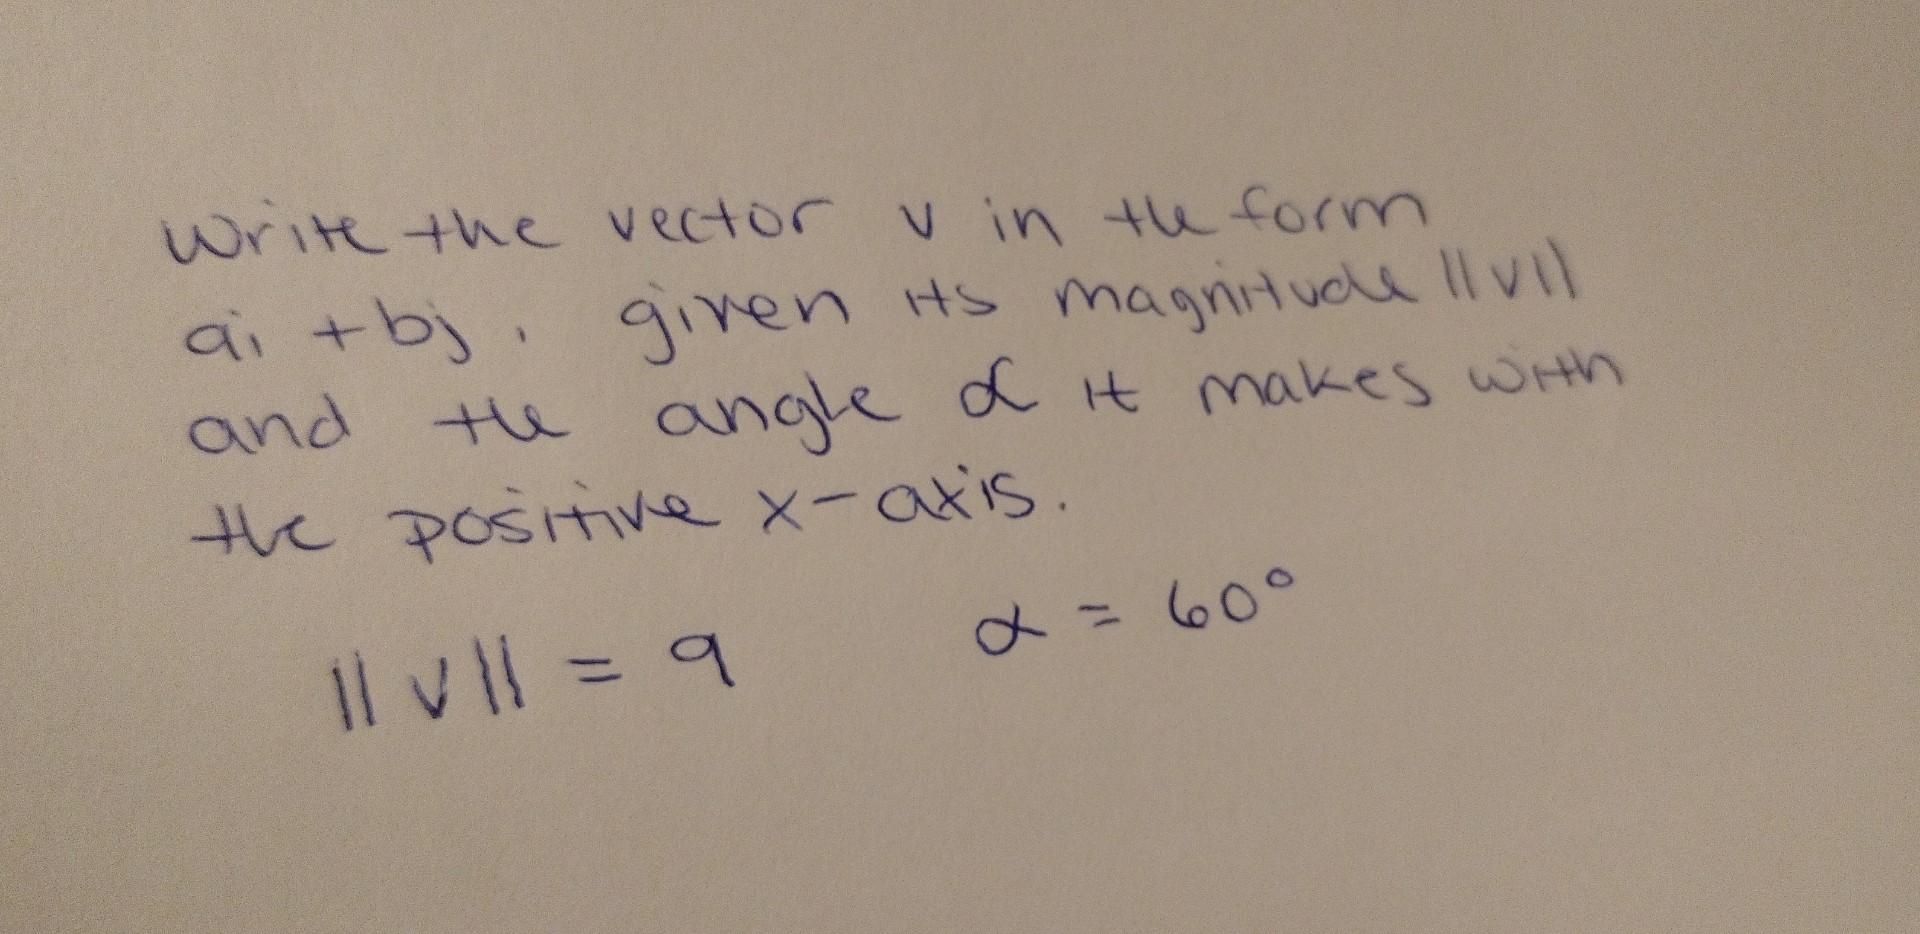 Write the vector v in the form
ai + bj, given its magnitude ||v||
and the angle α it makes with
the positive x-axis.
||v|| = 9 α = 60°